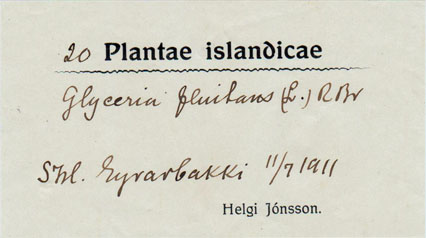 20 Plantae islandicae
Glyceria fluitans (L.) R Br
Stkl. Eyrarbakki 11/7 1911
Helgi Jónsson.